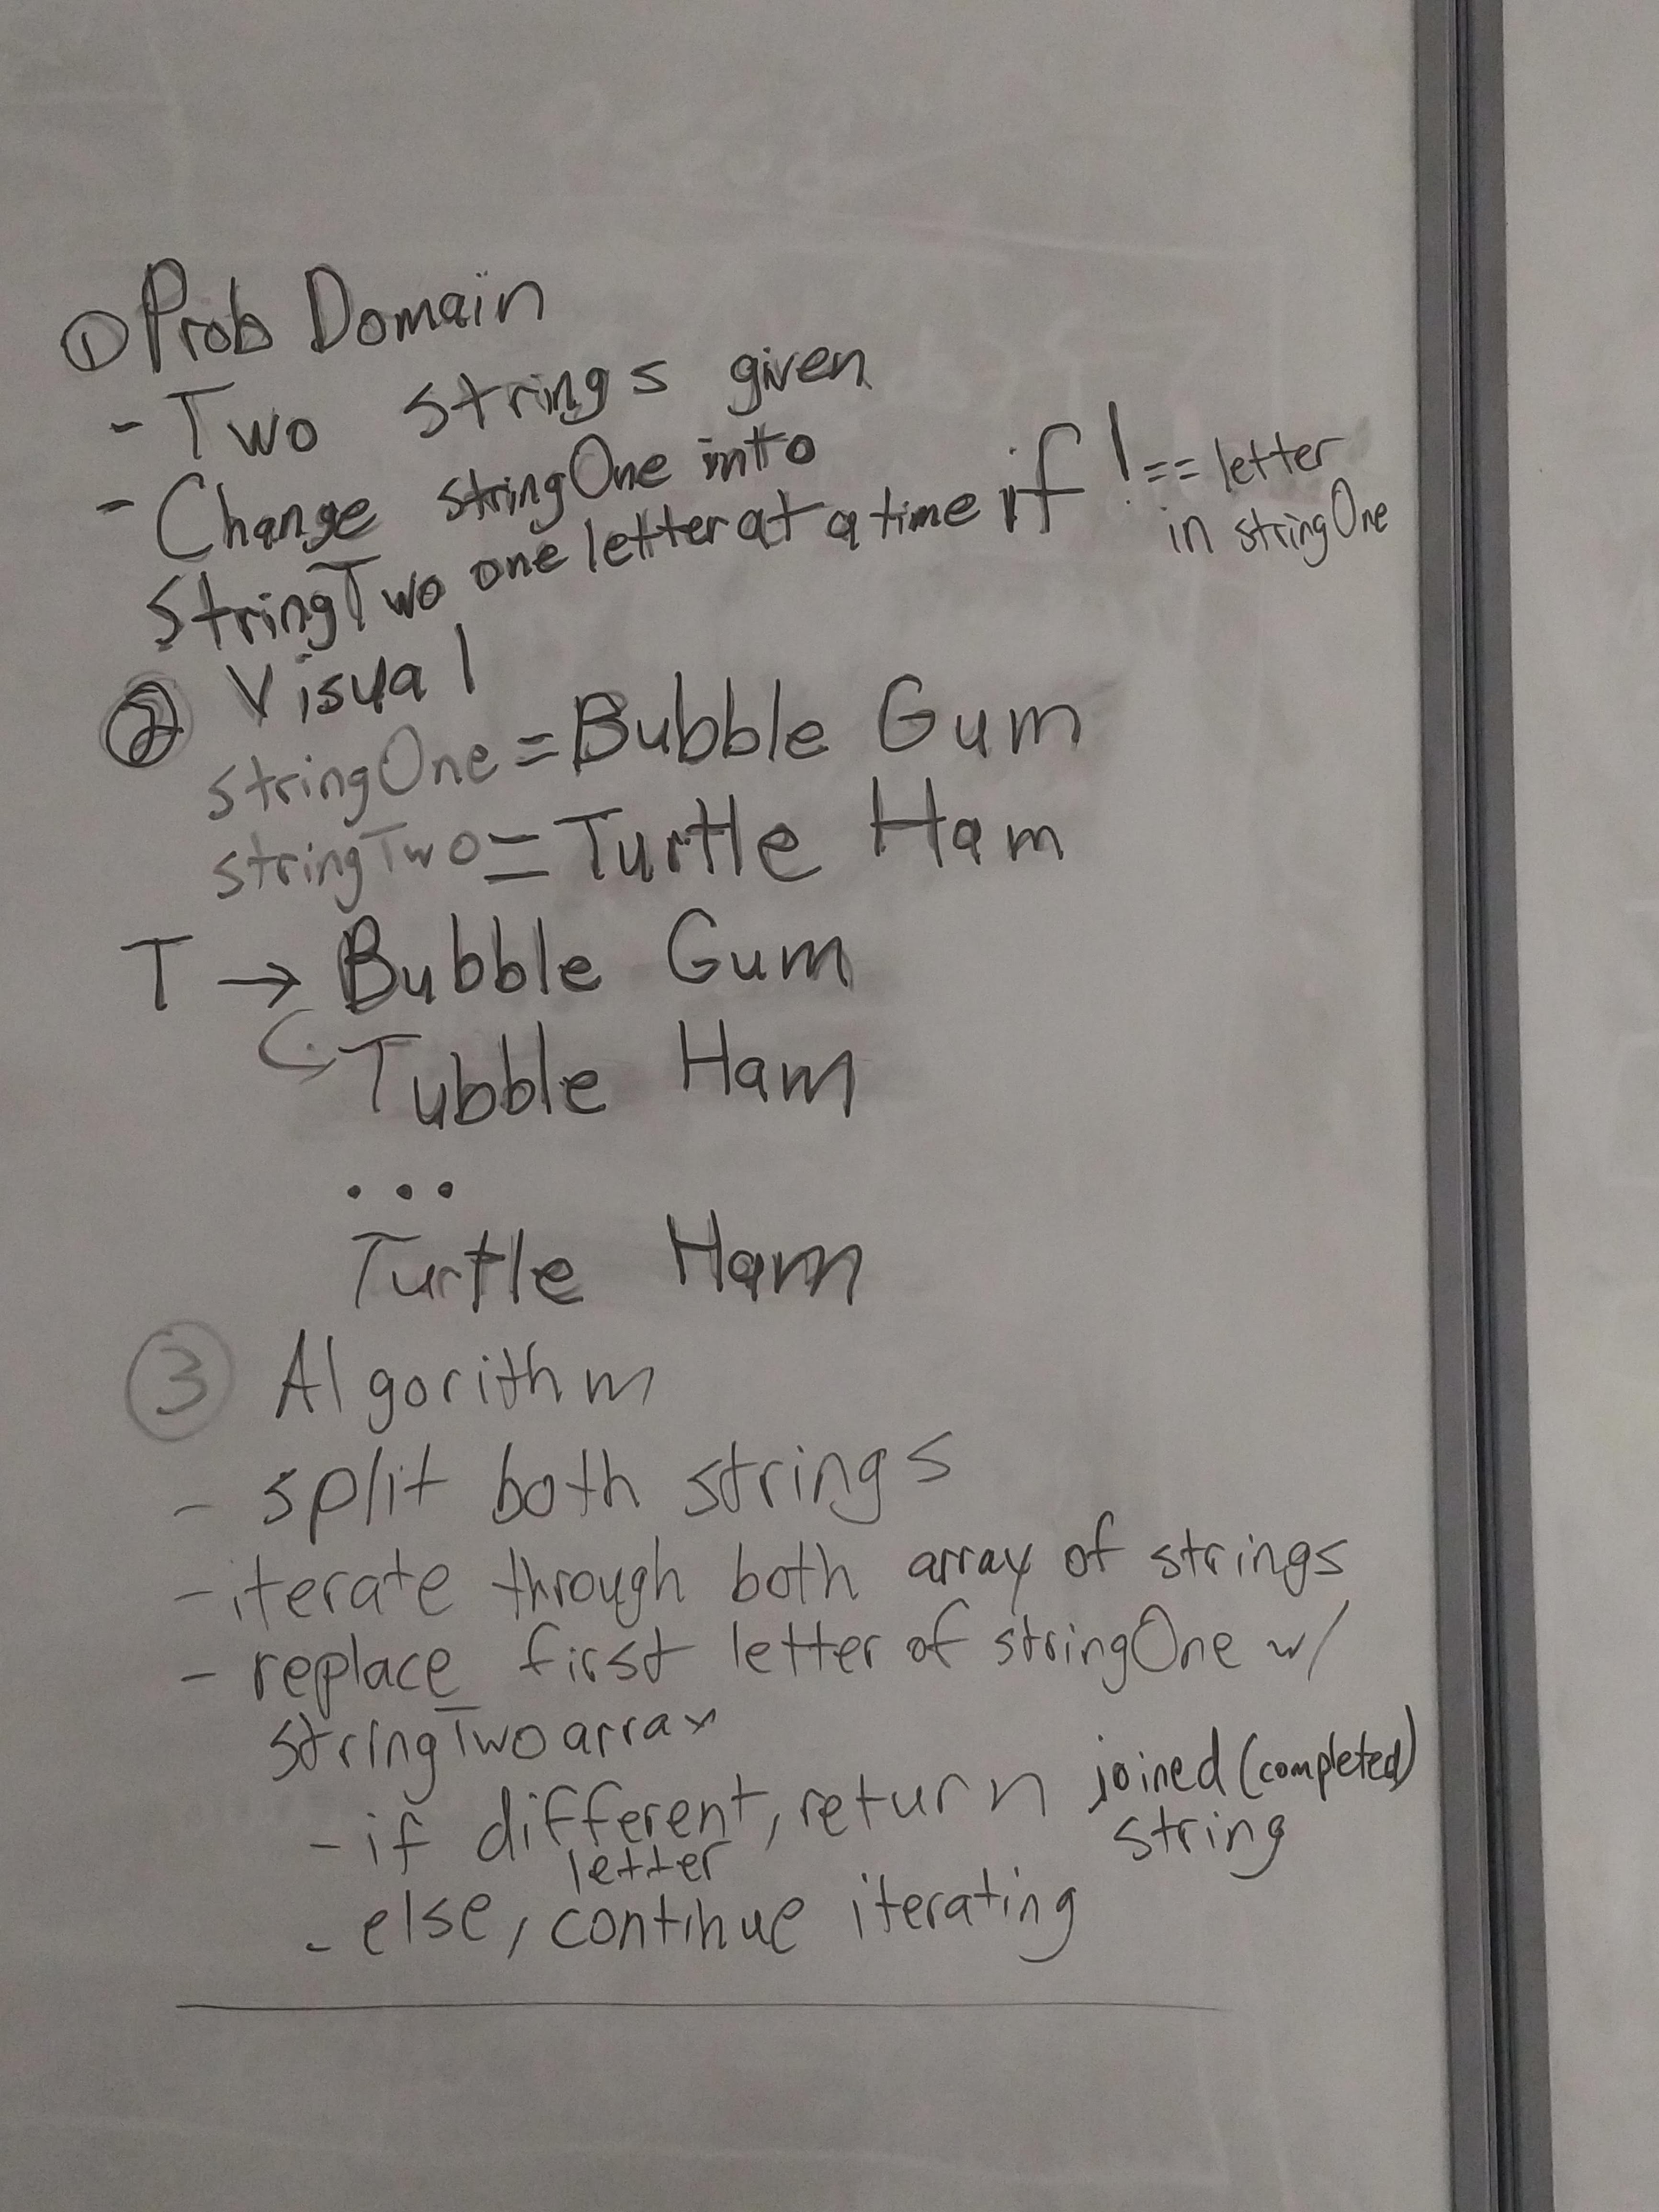 ① Prob Domain
- Two strings given
- Change stringOne into
StringTwo one letter at a time if !== letter
in stringOne
② Visual
stringOne = Bubble Gum
stringTwo = Turtle Ham
T → Bubble Gum
Tubble Ham
...
Turtle Ham
③ Algorithm
- split both strings
- iterate through both array of strings
- replace first letter of stringOne w/
stringTwo array
- if different, return joined (completed)
letter string
- else, continue iterating